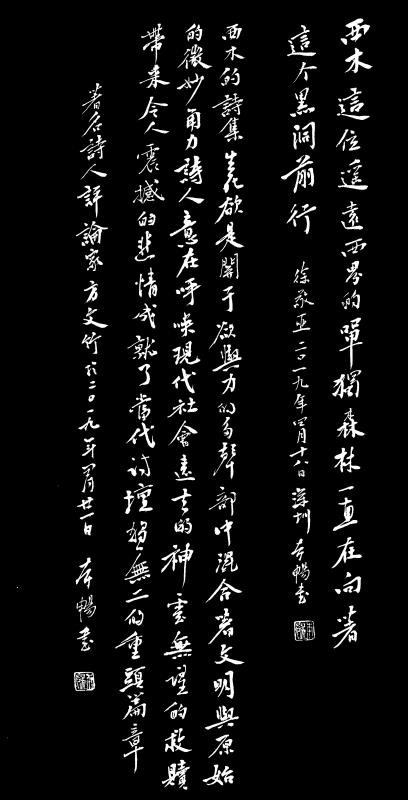 西木這位遥遠西界的單獨森林一直在向著
這个黑洞前行 徐敬亚二〇一九年四月十八日深圳 李暢書
西木的詩集 生死欲是關于欲與力的多聲部中混合着文明與原始
的微妙角力詩人意在呼喚現代社會遠去的神靈無望的救贖
帶来令人震撼的悲情成就了當代詩壇独無二的重頭篇章
著名詩人評論家方文竹於二〇一九年四月廿一日 李暢書